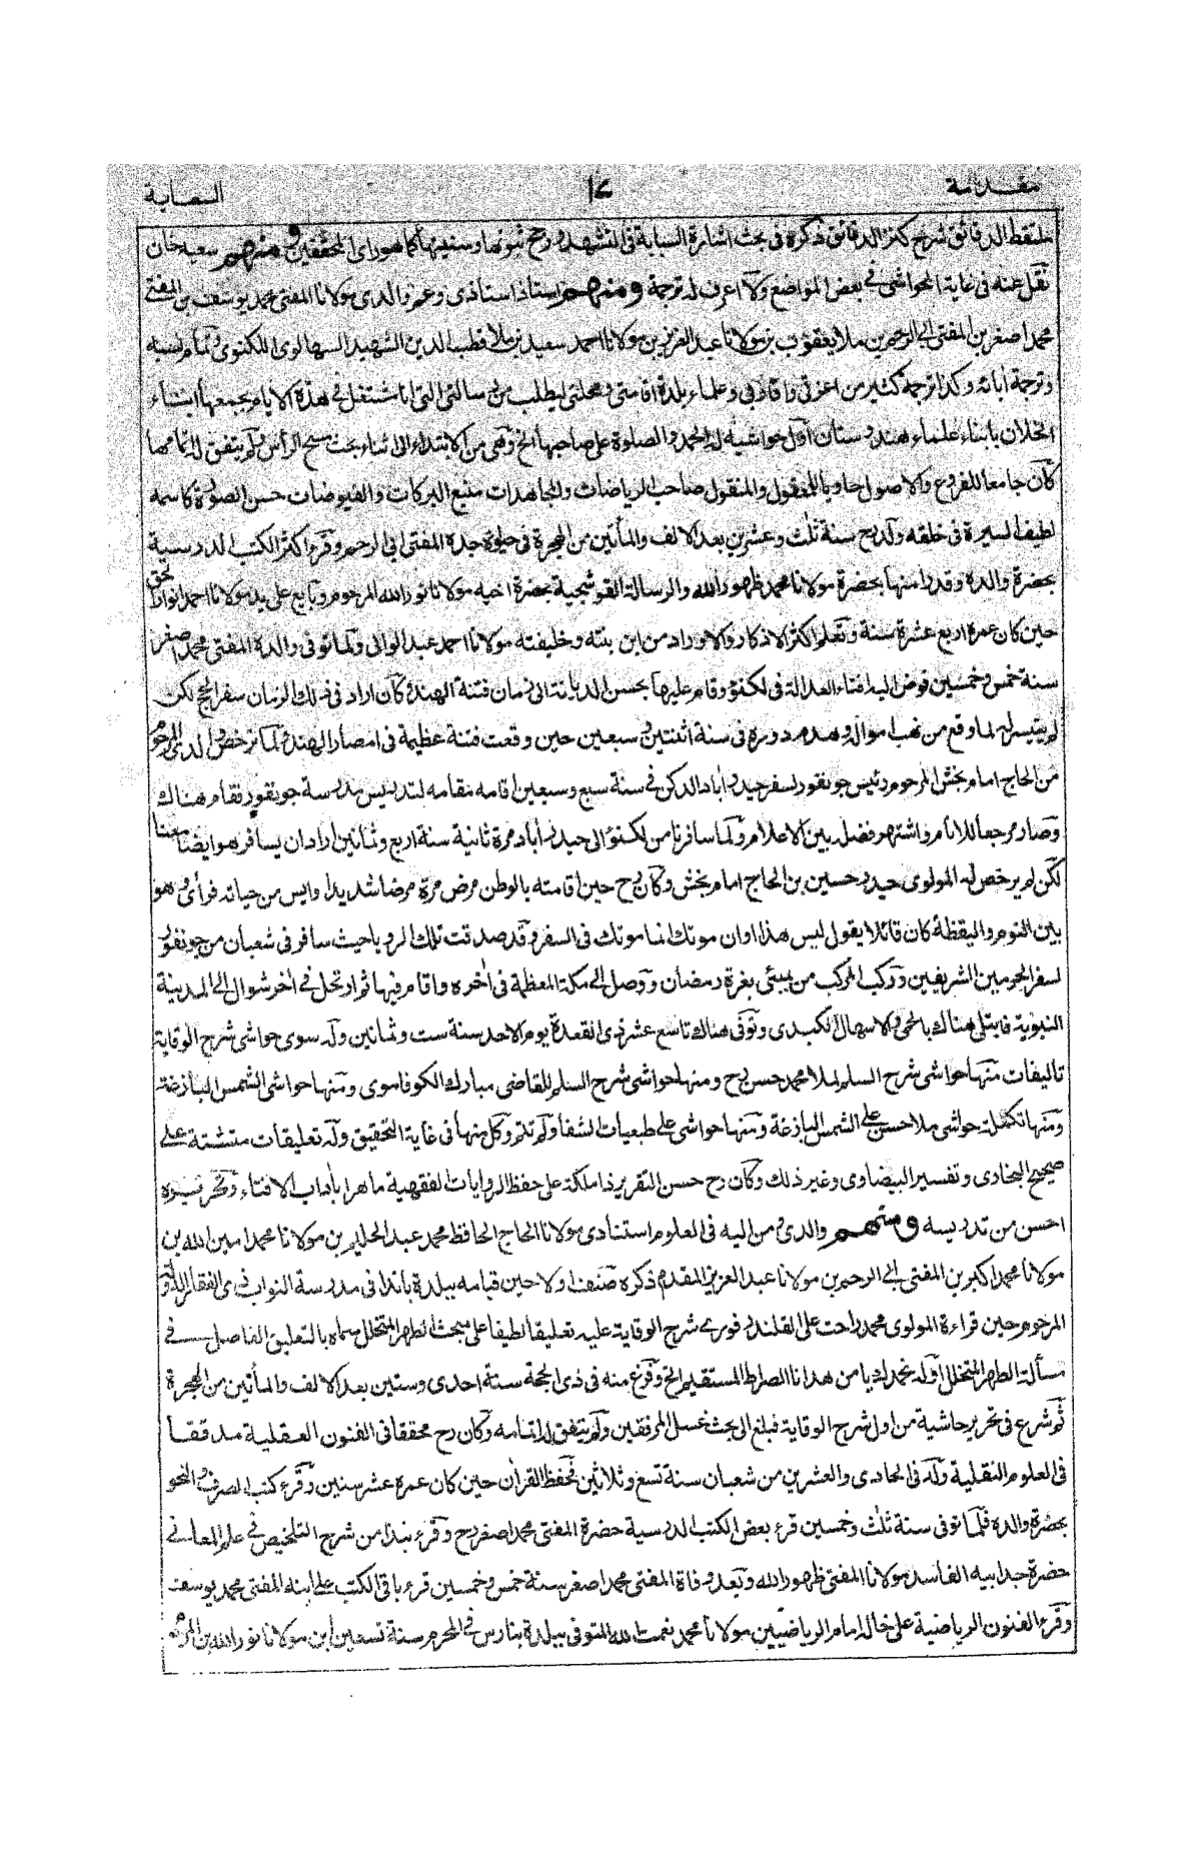 مقدمة ١٧ السعاية
ملتقط الدقائق شرح كنز الدقائق ذكره فى بحث اشارة السبابة فى التشهد ورجح ثبوتها وسنيتها كما هو رأى المحققين ومنهم سعيد خان
نقل عنه فى غاية الحواشى فى بعض المواضع ولا اعرف له ترجمة ومنهم استاذ استاذى وعم والدى مولانا المفتى محمد يوسف بن المفتى
محمد اصغر بن المفتى ابى الرحم بن ملا يعقوب بن مولانا عبد العزيز بن مولانا احمد سعيد بن ملا قطب الدين الشهيد السهالوى اللكنوى وتمام نسبه
وترجمة ابائه وكذا ترجمة كثير من اعزتى واقاربى وعلماء بلدة اقامتى ومحلتى يطلب من رسالتى التى انا مشتغل فى هذه الايام بجمعها انباء
الخلان بانباء علماء هندوستان اول حواشيه له الحمد والصلوة على صاحبها الخ وهى من الابتداء الى اثناء بحث مسح الرأس ولم يتفق له اتمامها
كان جامعا للفروع والاصول حاويا للمعقول والمنقول صاحب الرياضات والمجاهدات منبع البركات والفيوضات حسن الصورة كاسمه
لطيف السيرة فى خلقه ولد رح سنة ثلث وعشرين بعد الالف والمأتين من الهجرة فى حيوة جده المفتى ابى الرحم وقرء اكثر الكتب الدرسية
بحضرة والده وقدرا منها بحضرة مولانا محمد ظهور الله والرسالة القوشجية بحضرة اخيه مولانا نور الله المرحوم وبايع على يد مولانا احمد انوار الحق
حين كان عمره اربع عشرة سنة وتعلم اكثر الاذكار والاوراد من ابن بنته وخليفته مولانا احمد عبد الوالى ولما توفى والده المفتى محمد اصغر
سنة خمس وخمسين فوض اليه افتاء العدالة فى لكنؤ وقام عليها بحسن الديانة الى زمان فتنة الهند وكان اراد فى ذلك الزمان سفر الحج لكن
لم يتيسر له لما وقع من نهب امواله وهدم دوره فى سنة اثنتين وسبعين حين وقعت فتنة عظيمة فى امصار الهند ولما ترخص والدى المرحوم
من الحاج امام بخش المرحوم رئيس جونفور لسفر حيدراباد الدكن فى سنة سبع وسبعين اقامه مقامه لتدريس مدرسة جونفور فقام هناك
وصار مرجعا للانام واشتهر فضله بين الاعلام ولما سافرنا من لكنؤ الى حيدراباد مرة ثانية سنة اربع وثمانين اراد ان يسافر هو ايضا معنا
لكن لم يرخص له المولوى حيدر حسين بن الحاج امام بخش وكان رح حين اقامته بالوطن مرض مرة مرضا شديدا وايس من حياته فرأى وهو
بين النوم واليقظة كان قائلا يقول ليس هذا اوان موتك انما موتك فى السفر وقد صدقت تلك الرويا حيث سافر فى شعبان من جونفور
لسفر الحرمين الشريفين وركب المركب من بمبئى بغرة رمضان ووصل الى مكة المعظمة فى اخره واقام فيها ثم ارتحل فى اخر شوال الى المدينة
النبوية فابتلى هناك بالحمى والاسهال الكبدى وتوفى هناك تاسع عشر ذى القعدة يوم الاحد سنة ست وثمانين وله سوى حواشى شرح الوقاية
تاليفات منها حواشى شرح السلم لملا محمد حسن رح ومنها حواشى شرح السلم للقاضى مبارك الكوفاموى ومنها حواشى الشمس البازغة
ومنها تكملة حواشى ملا حسن على الشمس البازغة ومنها حواشى على طبعيات الشفا ولم تتم وكل منها فى غاية التحقيق وله تعليقات متشتتة على
صحيح البخارى وتفسير البيضاوى وغير ذلك وكان رح حسن التقرير ذا ملكة على حفظ الروايات الفقهية ماهرا باداب الافتاء وتحريره
احسن من تدريسه ومنهم والدى ومن اليه فى العلوم استنادى مولانا الحاج الحافظ محمد عبد الحليم بن مولانا محمد امين الله بن
مولانا محمد اكبر بن المفتى ابى الرحم بن مولانا عبد العزيز المقدم ذكره صنف اولا حين قيامه ببلدة باندا فى مدرسة النواب ذى الفقار الدولة
المرحوم حين قراءة المولوى محمد راحت على القلندرفورى شرح الوقاية عليه تعليقا لطيفا على مبحث الطهر المتخلل سماه بالتعليق الفاصل فى
مسألة الطهر المتخلل اوله نحمدك يا من هدانا الصراط المستقيم الخ وفرغ منه فى ذى الحجة سنة احدى وستين بعد الالف والمأتين من الهجرة
ثم شرع فى تحرير حاشية من اول شرح الوقاية فبلغ الى بحث غسل المرفقين ولم يتفق له اتمامه وكان رح محققا فى الفنون العقلية مدققا
فى العلوم النقلية ولد فى الحادى والعشرين من شعبان سنة تسع وثلاثين فحفظ القران حين كان عمره عشر سنين وقرء كتب الصرف والنحو
بحضرة والده فلما توفى سنة ثلث وخمسين قرء بعض الكتب الدرسية حضرة المفتى محمد اصغر رح وقرء نبذا من شرح التلخيص فى علم المعانى
حضرة جد ابيه الفاسد مولانا المفتى ظهور الله وبعد وفاة المفتى محمد اصغر سنة خمس وخمسين قرء باقى الكتب على ابنه المفتى محمد يوسف
وقرء الفنون الرياضية على خاله امام الرياضيين مولانا محمد نعمت الله المتوفى ببلدة بنارس فى المحرم سنة تسعين ابن مولانا نور الله بن